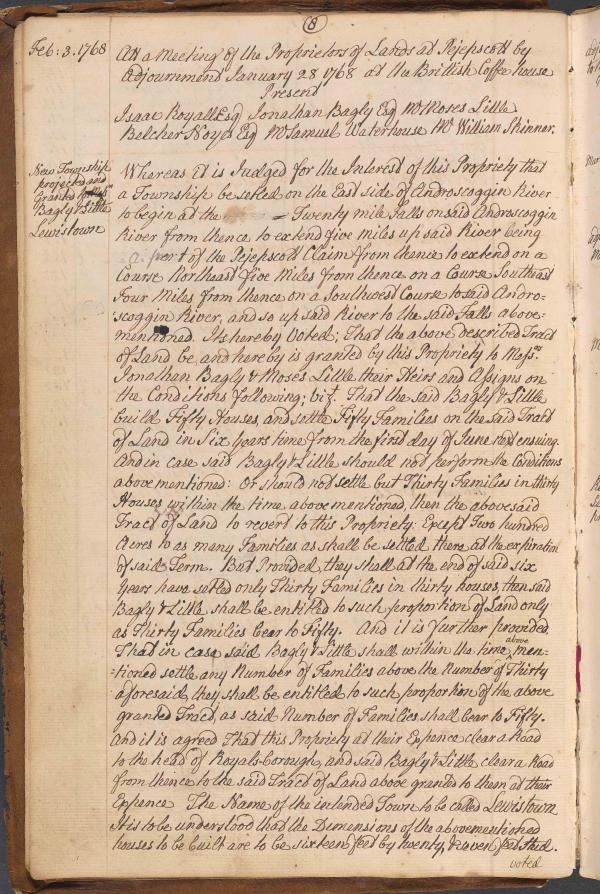 8
Feb: 3. 1768
Att a Meeting of the Proprietors of Lands at Pejepscott by
Adjournment January 28 1768 at the Brittish Coffee house
Present
Isaac Royall Esq Jonathan Bagly Esq Mr Moses Little
Belcher Noyes Esq Mr Samuel Waterhouse Mr William Skinner.
New Township
projected and
Granted
Bagly & Little
Lewistown
Whereas it is Judged for the Interest of this Propriety that
a Township be setled on the East side of Androscoggin River
to begin at the = Twenty mile Falls on said Androscoggin
River from thence to extend five miles up said River being
a part of the Pejepscott Claim from thence to extend on a
Course Northeast five Miles from thence on a Course Southeast
Four Miles from thence on a Southwest Course to said Andro-
scoggin River, and so up said River to the said Falls above-
mentioned. Its hereby Voted; That the above described Tract
of Land be and hereby is granted by this Propriety to Messrs.
Jonathan Bagly & Moses Little their Heirs and Assigns on
the Conditions following; vizt. That the said Bagly & Little
build Fifty Houses, and settle Fifty Families on the said Tract
of Land in Six Years time from the first day of June next ensuing.
And in case said Bagly & Little should not perform the Conditions
abovementioned: Or should not settle but Thirty Families in thirty
Houses within the time abovementioned, then the abovesaid
Tract of Land to revert to this Propriety: Except Two hundred
Acres to as many Families as shall be settled there at the expiration
of said Term. But Provided, they shall at the end of said six
Years have setled only Thirty Families in thirty houses, then said
Bagly & Little shall be entitled to such proportion of Land only
as Thirty Families bear to Fifty. And it is further provided.
That in case said Bagly & Little shall within the time above men-
-tioned settle any Number of Families above the Number of Thirty
aforesaid, they shall be entitled to such proportion of the above
granted Tract, as said Number of Families shall bear to Fifty.
And it is agreed That this Propriety at their Expence clear a Road
to the head of Royalsborough, and said Bagly & Little clear a Road
from thence to the said Tract of Land above granted to them at their
Expence The Name of the intended Town to be called Lewistown
It is to be understood that the Dimensions of the abovementioned
houses to be built are to be sixteen feet by twenty, & seven feet Stud.
voted